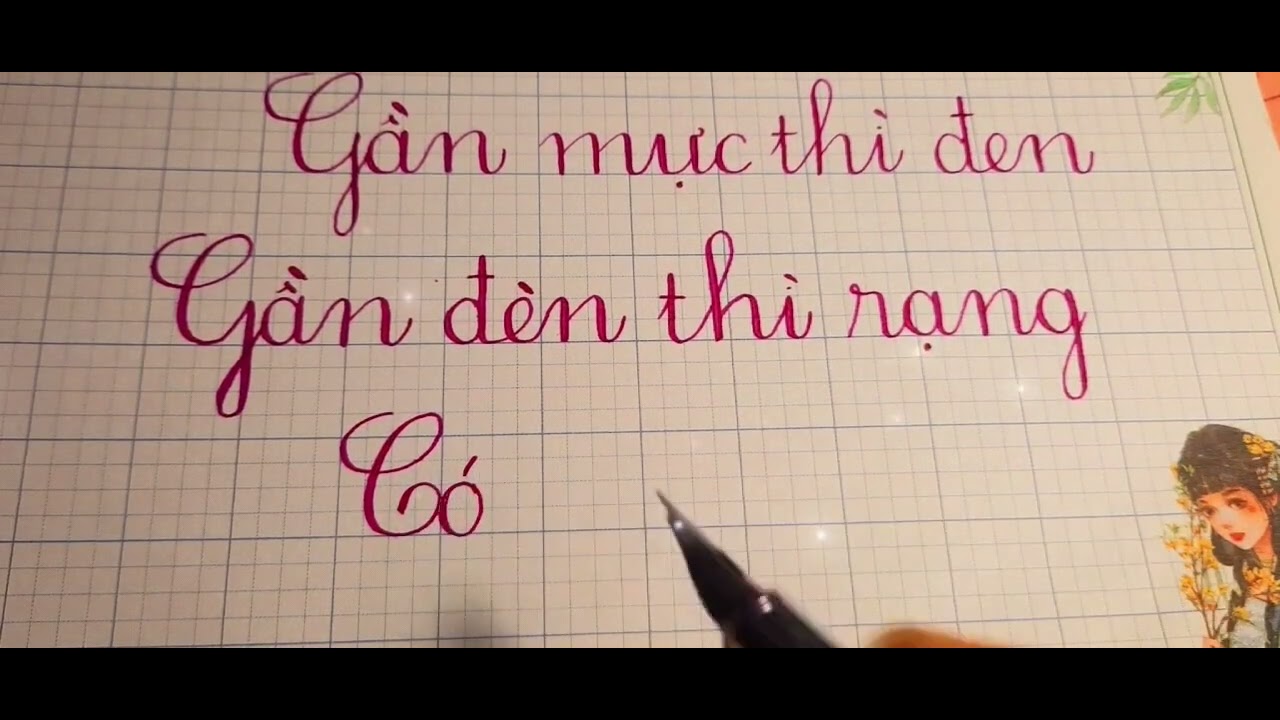 Gần mực thì đen
Gần đèn thì rạng
Có